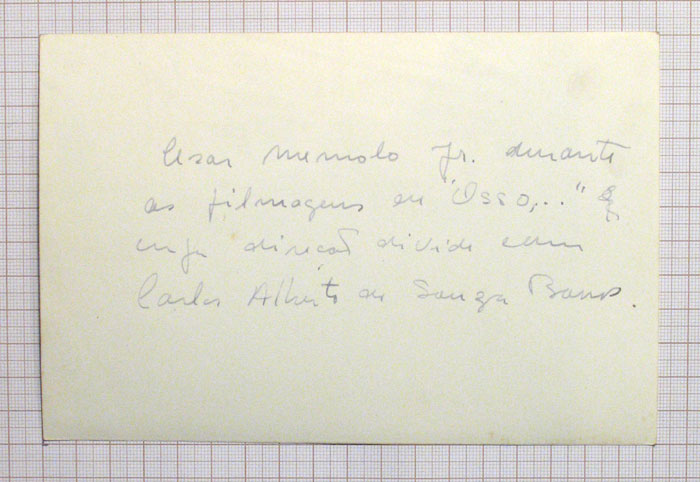 Cesar Memolo Jr. durante
as filmagens de "Osso,.."
cuja direção divide com
Carlos Alberto de Souza Barros.